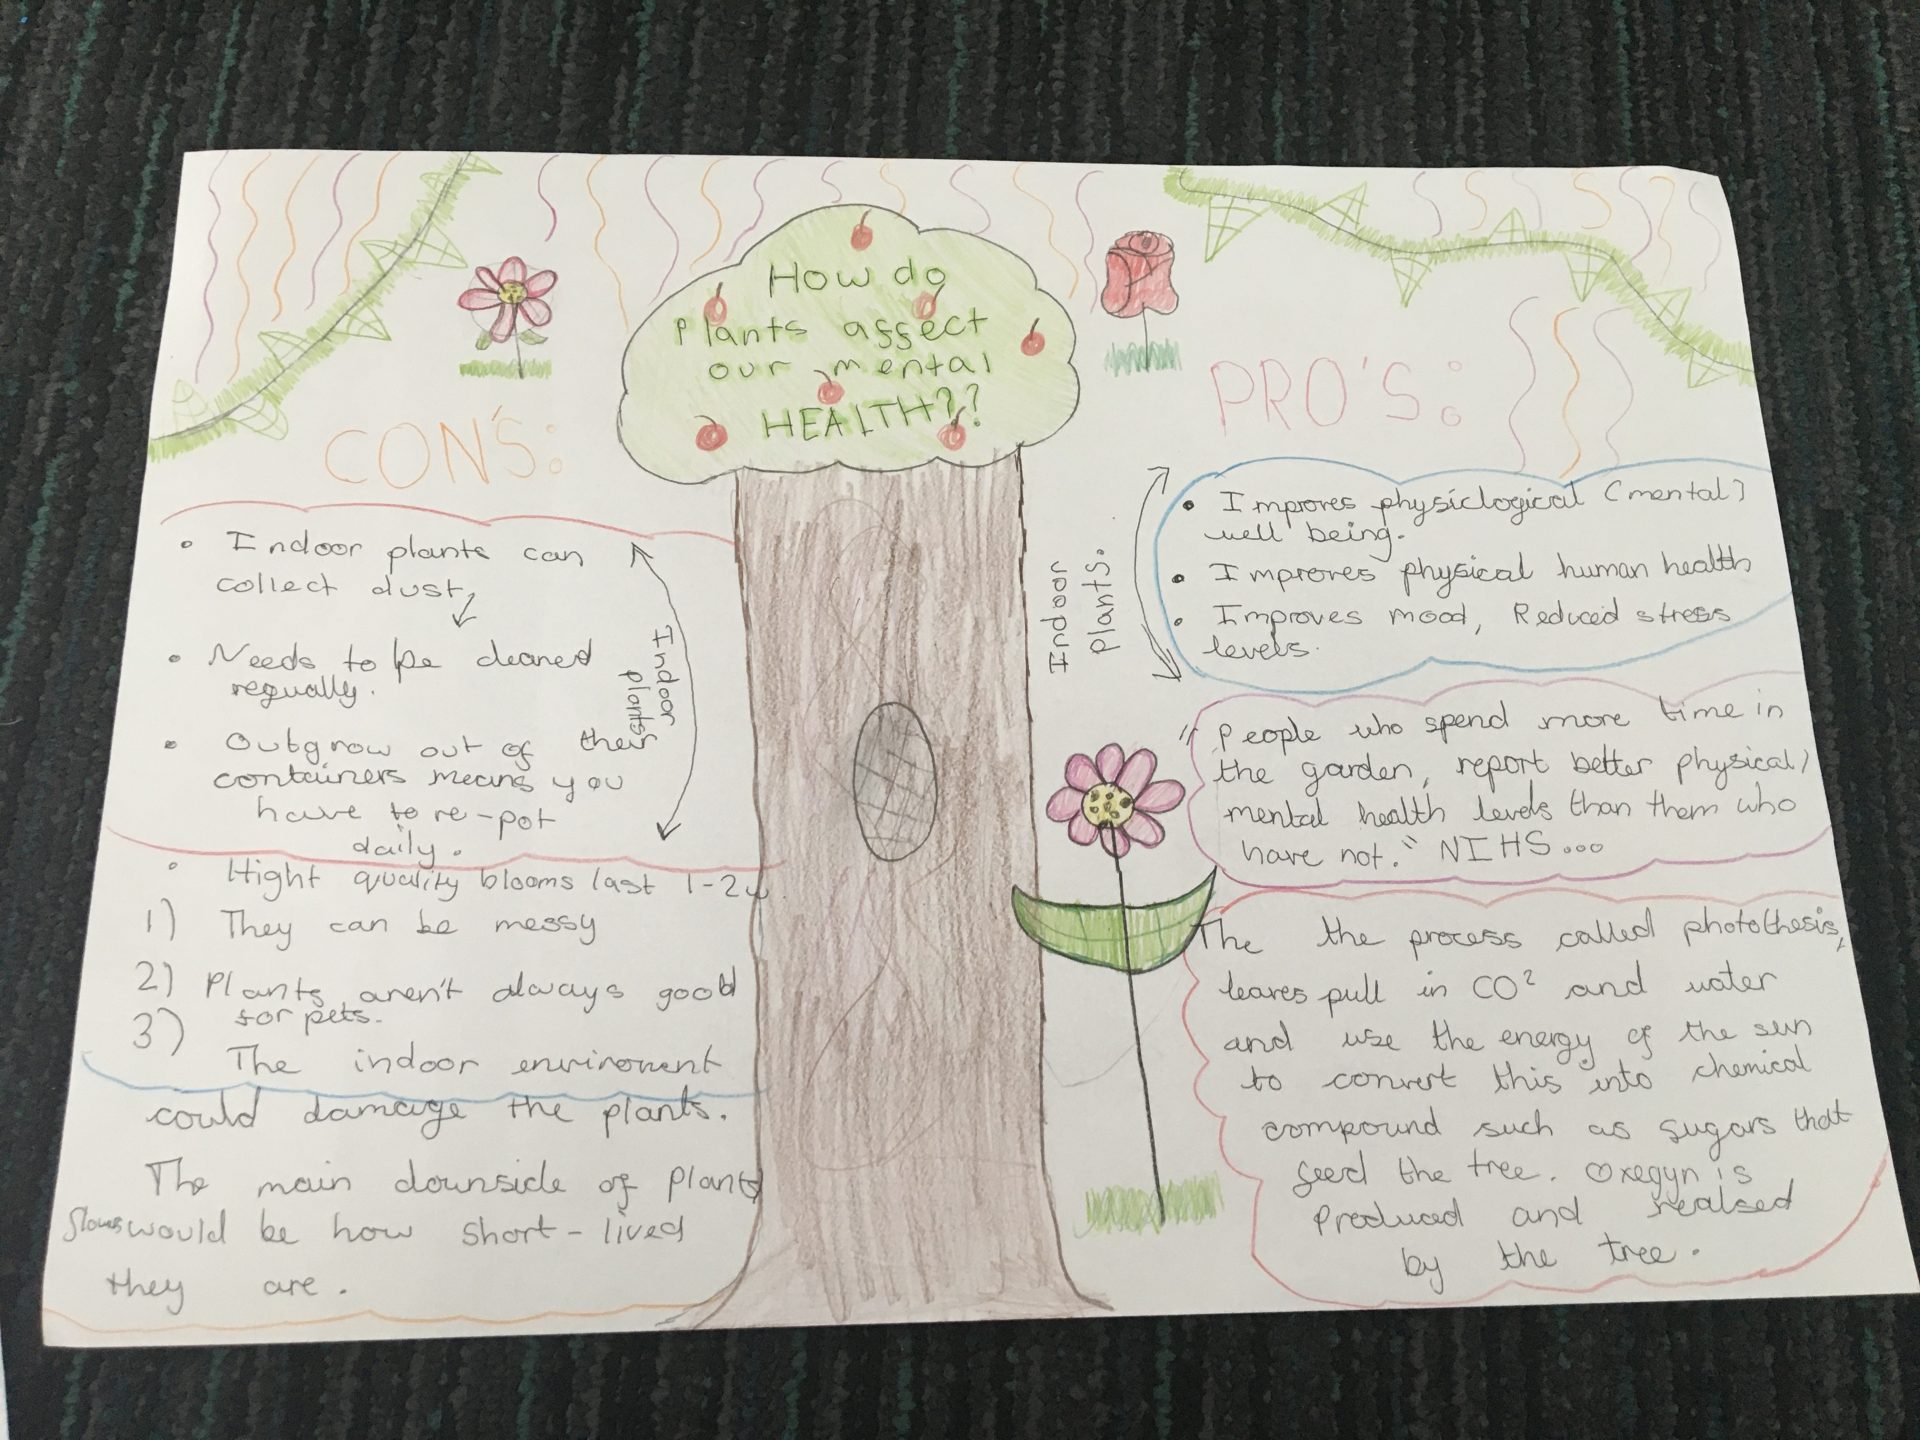 How do
Plants affect
our mental
HEALTH??
CON'S:
• Indoor plants can
collect dust,
• Needs to be cleaned
regually.
• Outgrow out of their
containers means you
have to re-pot
daily.
Indoor
plants
• Hight quality blooms last 1-2w
1) They can be messy
2) Plants aren't always good
for pets.
3)
The indoor enviroment
could damage the plants.
The main downside of plants
would be how short-lived
they are.
PRO'S:
Indoor
plants.
• Improves physiclogical (mental)
well being.
• Improves physical human health
• Improves mood, Reduced stress
levels.
"People who spend more time in
the garden, report better physical/
mental health levels than them who
have not." NIHS...
The the process called photothesis,
leaves pull in CO² and water
and use the energy of the sun
to convert this into chemical
compound such as sugars that
feed the tree. Oxegyn is
Produced and realsed
by the tree.